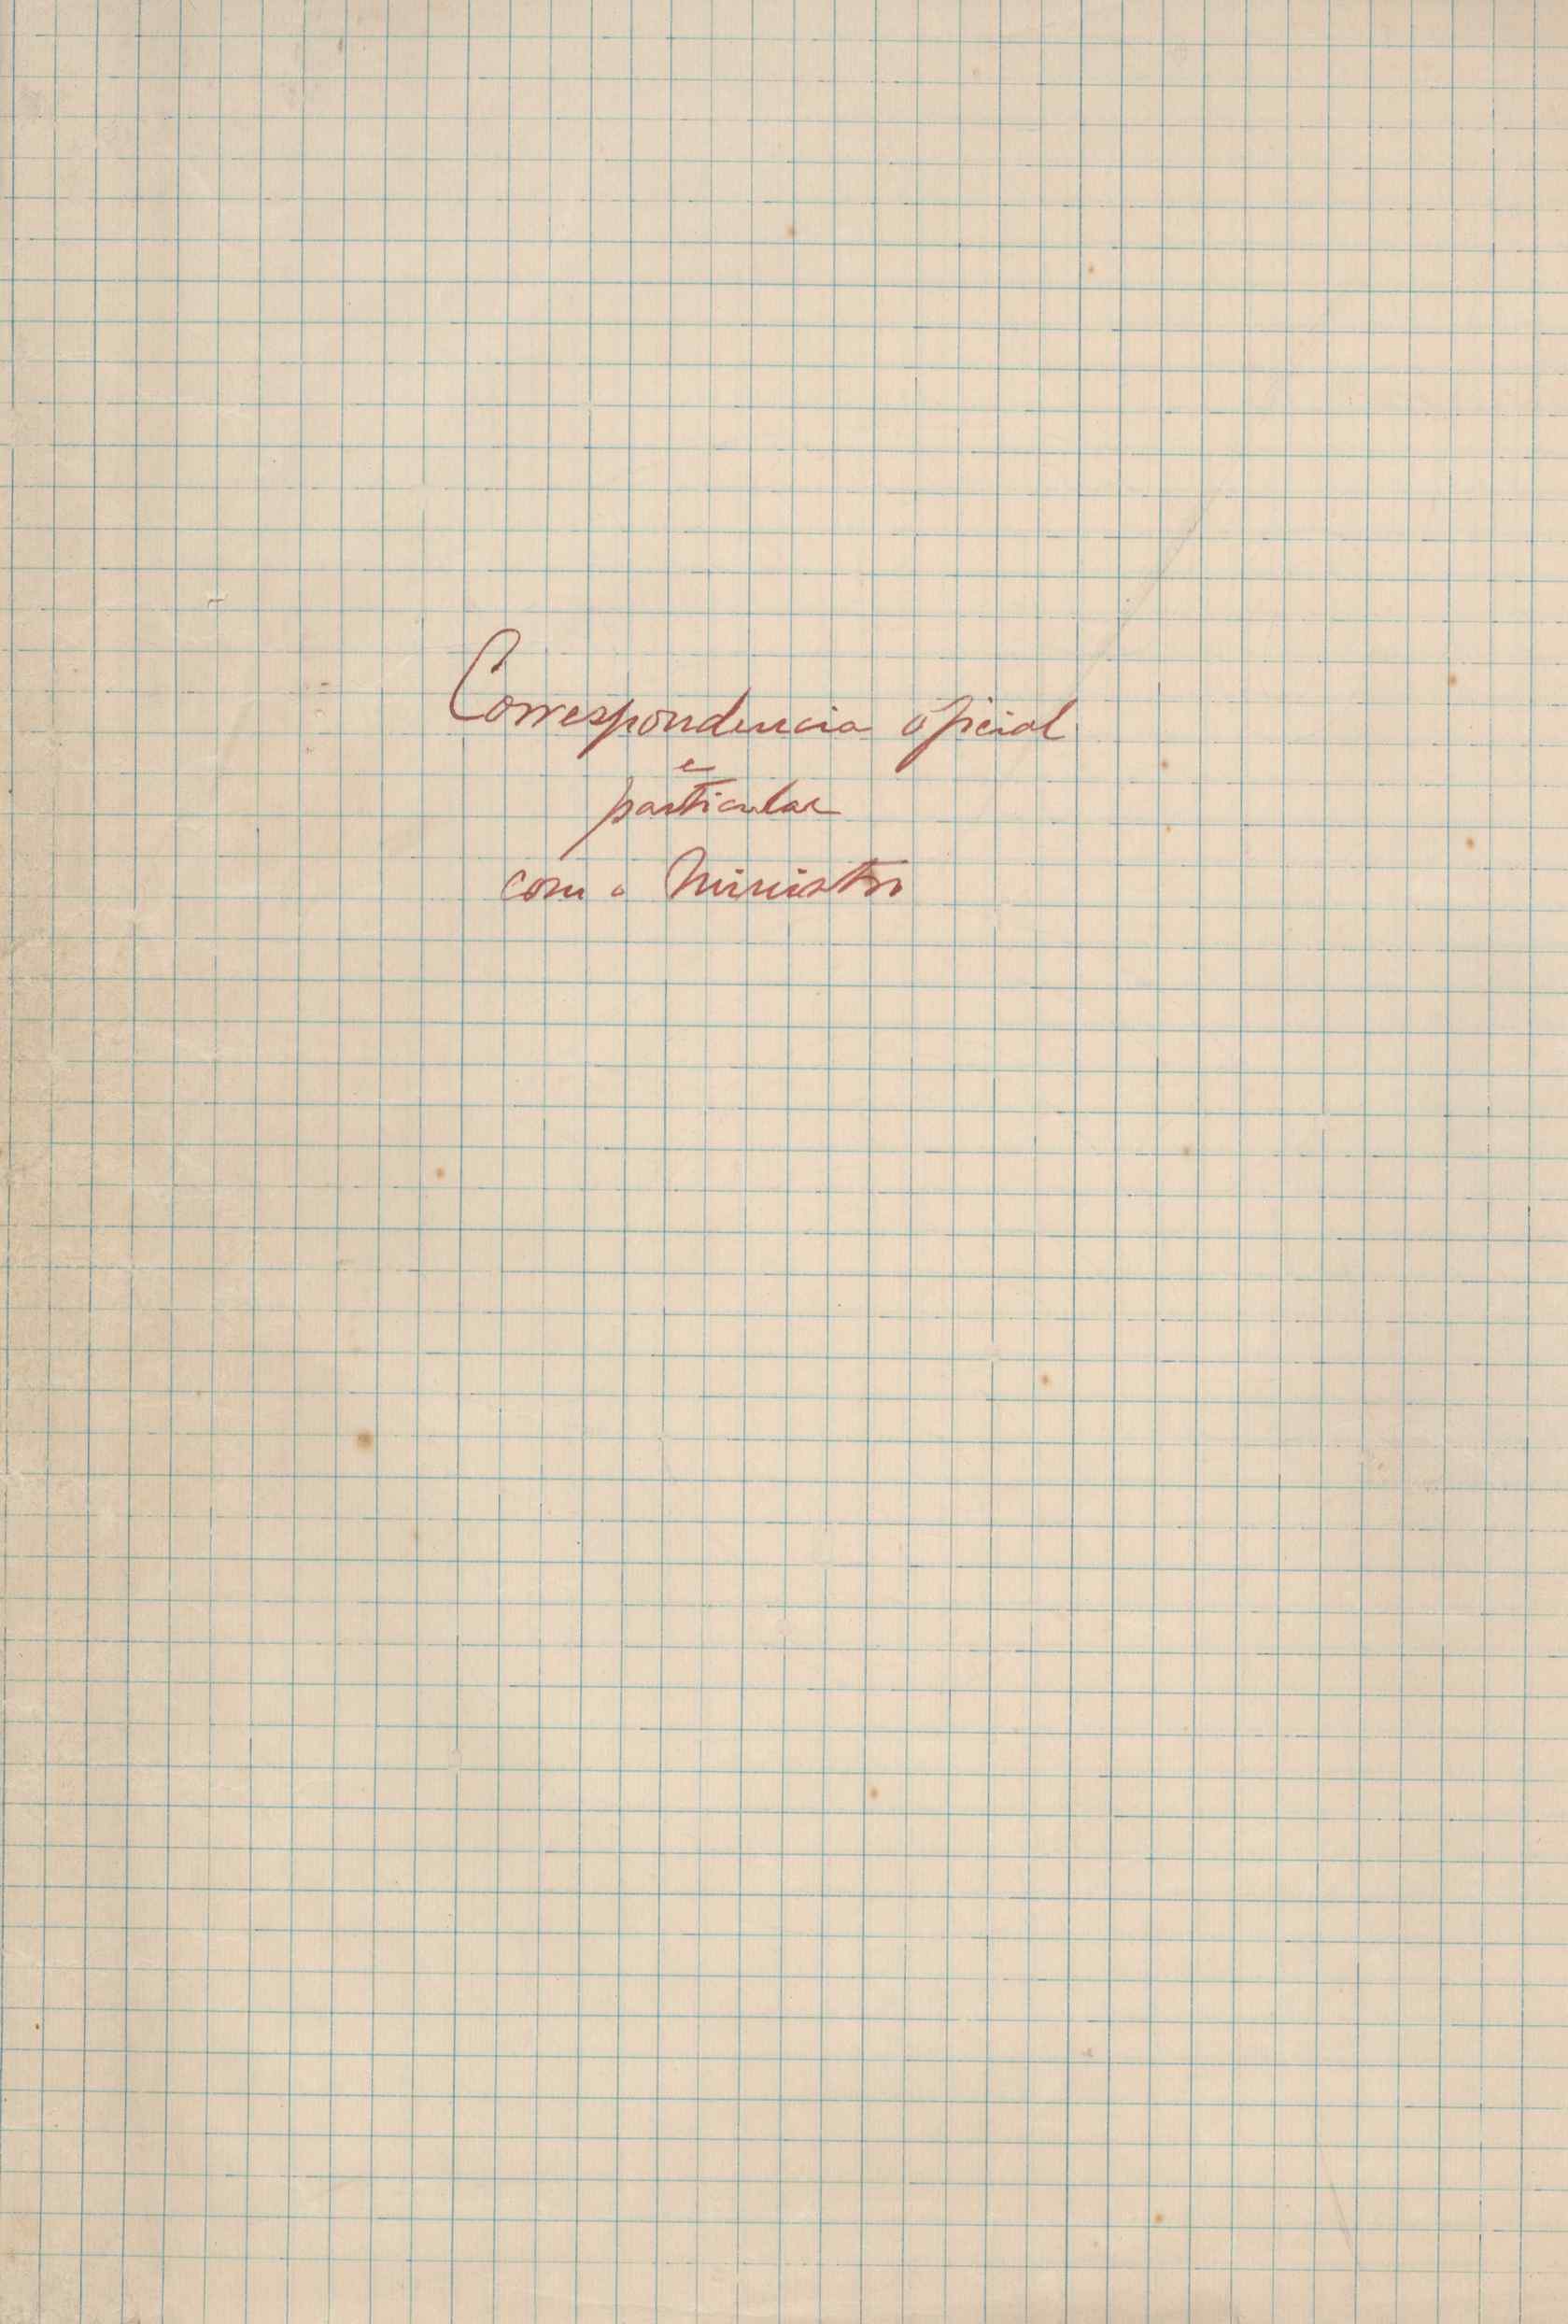 Correspondencia oficial
e
particular
com o Ministro